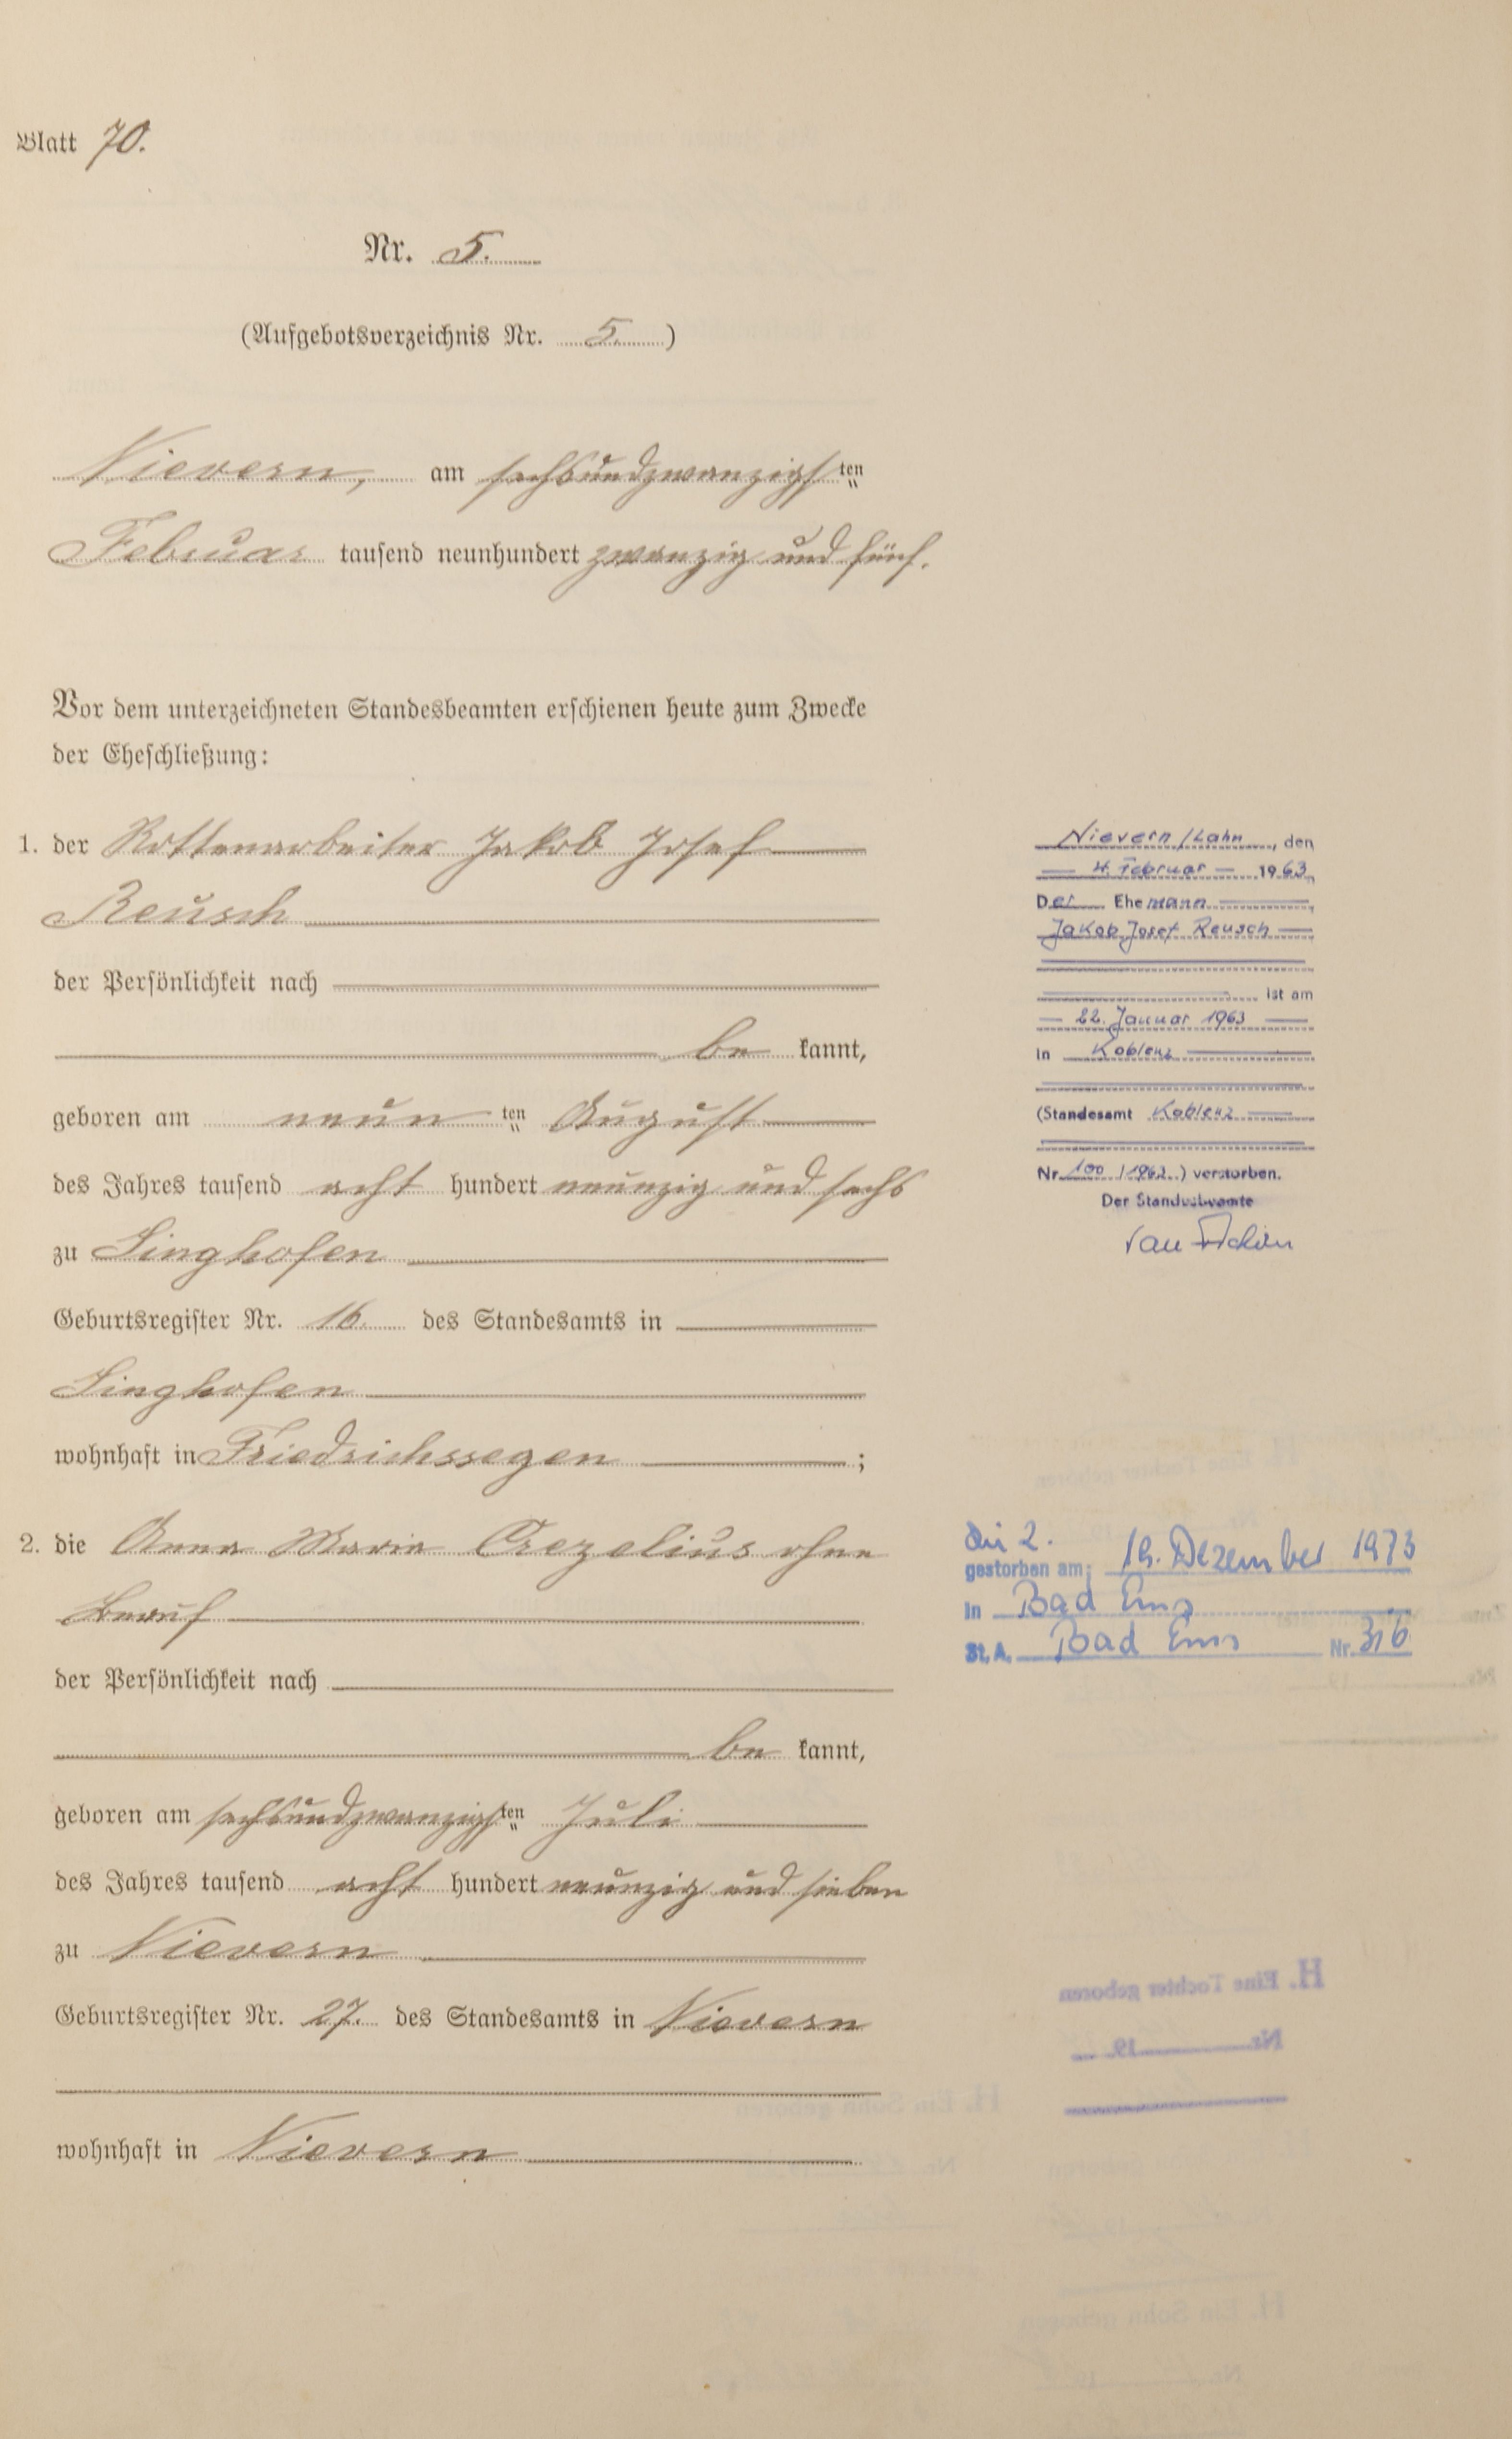 Blatt 70.
Nr. 5.
(Aufgebotsverzeichnis Nr. 5.)
Nievern, am sechsundzwanzigsten
Februar tausend neunhundert zwanzig und fünf.
Vor dem unterzeichneten Standesbeamten erschienen heute zum Zwecke
der Eheschließung:
1. der Rottenarbeiter Jakob Josef
Reusch
der Persönlichkeit nach
be kannt,
geboren am neun ten August
des Jahres tausend acht hundert neunzig und sechs
zu Singhofen
Geburtsregister Nr. 16. des Standesamts in
Singhofen
wohnhaft in Friedrichssegen ;
2. die Anna Maria Crezelius ohne
Beruf
der Persönlichkeit nach
be kannt,
geboren am sechsundzwanzigsten Juli
des Jahres tausend acht hundert neunzig und sieben
zu Nievern
Geburtsregister Nr. 27. des Standesamts in Nievern
wohnhaft in Nievern
Nievern/Lahn, den
4. Februar 1963
Der Ehemann
Jakob Josef Reusch
ist am
22. Januar 1963
in Koblenz
(Standesamt Koblenz
Nr. 100 /1963.) verstorben.
Der Standesbeamte
die 2.
gestorben am: Dezember 1973
in Bad Ems
St. A. Bad Ems Nr. 316
H. Eine Tochter geboren
Nr. 19
H. Ein Sohn geboren
H. Ein Sohn geboren